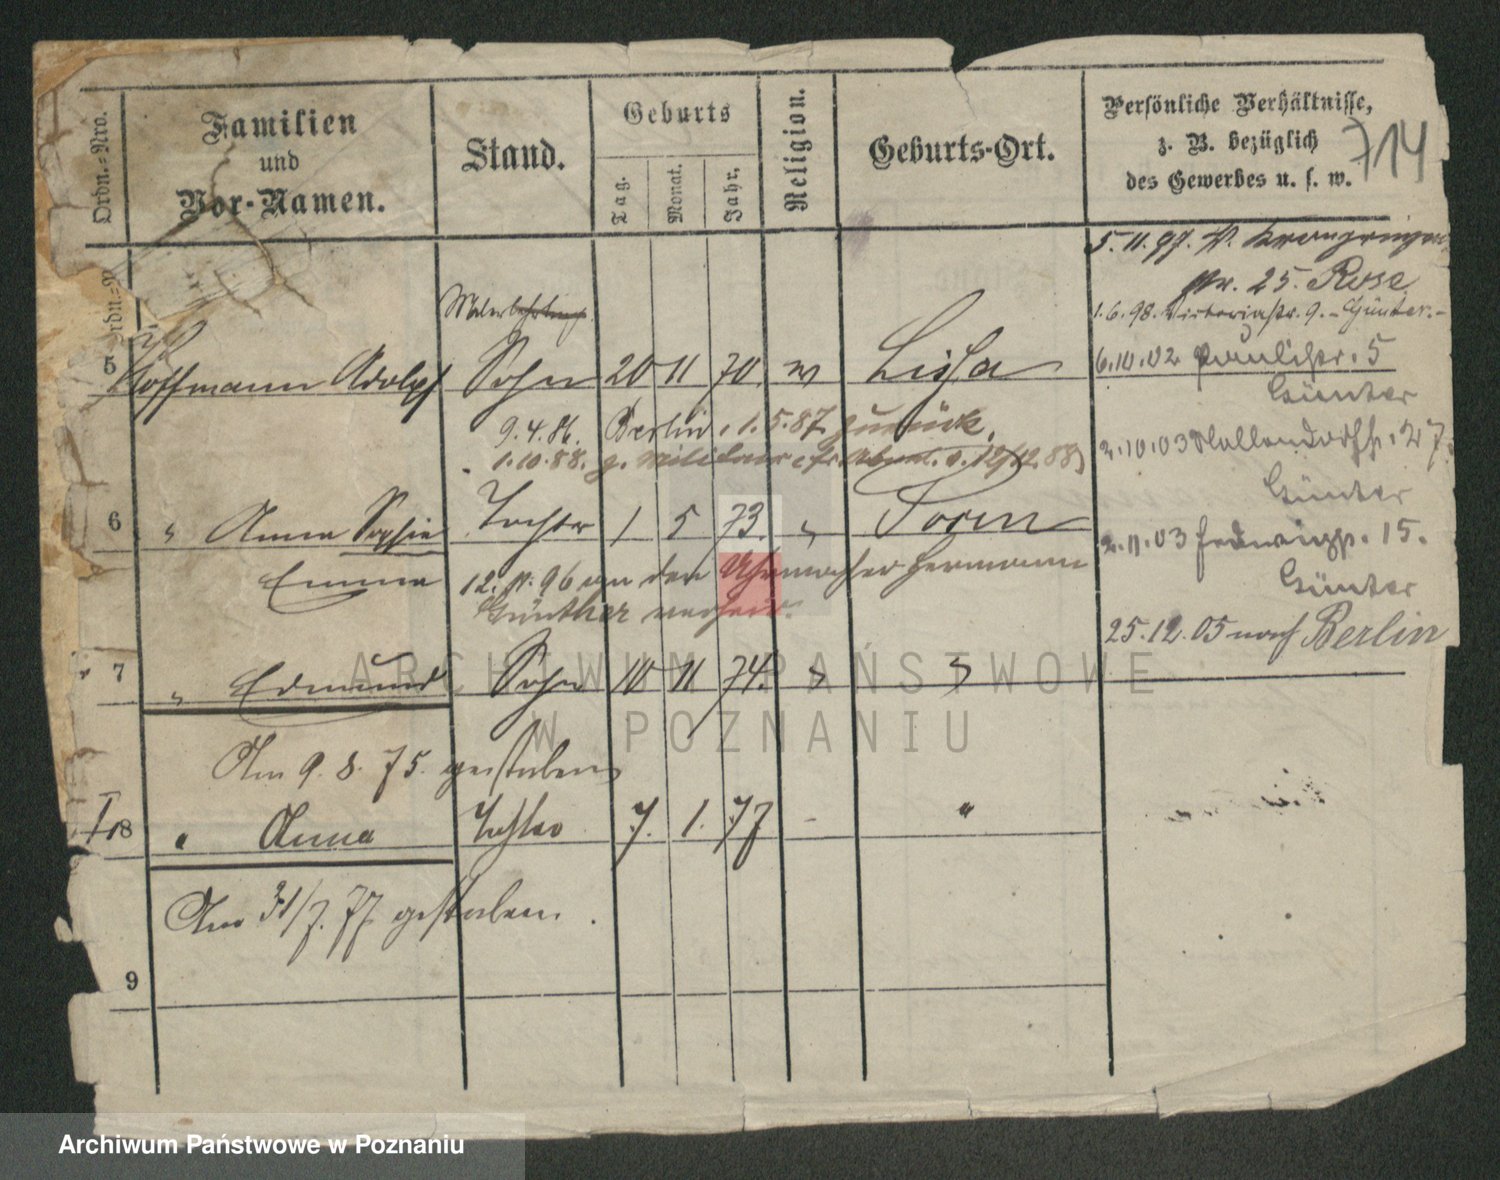 Ordn.=Nro.
Familien
und
Vor-Namen.
Stand.
Geburts
Tag.
Monat.
Jahr.
Religion.
Geburts-Ort.
Persönliche Verhältnisse,
z. B. bezüglich
des Gewerbes u. s. w.
714
5.11.97.
25. Rose
1.6.98. Victoriastr. 9. - Günter. -
Malerlehrling
5 Hoffmann Adolph Sohn 20 11 70 Lissa
6.10.02 Paulistr. 5
Günter
9.4.86. Berlin, 1.5.87 zurück.
1.10.88. z. Militair
2.10.03 27
Günter
6 " Anna Sophie Tochter 1 5 73. " Posen
Emma
2.11.03 15.
Günter
12. 11. 96 an den Uhrmacher Hermann
Günther verheir.
25.12.05 nach Berlin
7 " Edmund Sohn 10 11 74. " "
Am 9. 8. 75. gestorben
8 " Anna Tochter 7. 1. 77 - "
Am 31/7. 77 gestorben.
9
ARCHIWUM PAŃSTWOWE
W POZNANIU
Archiwum Państwowe w Poznaniu